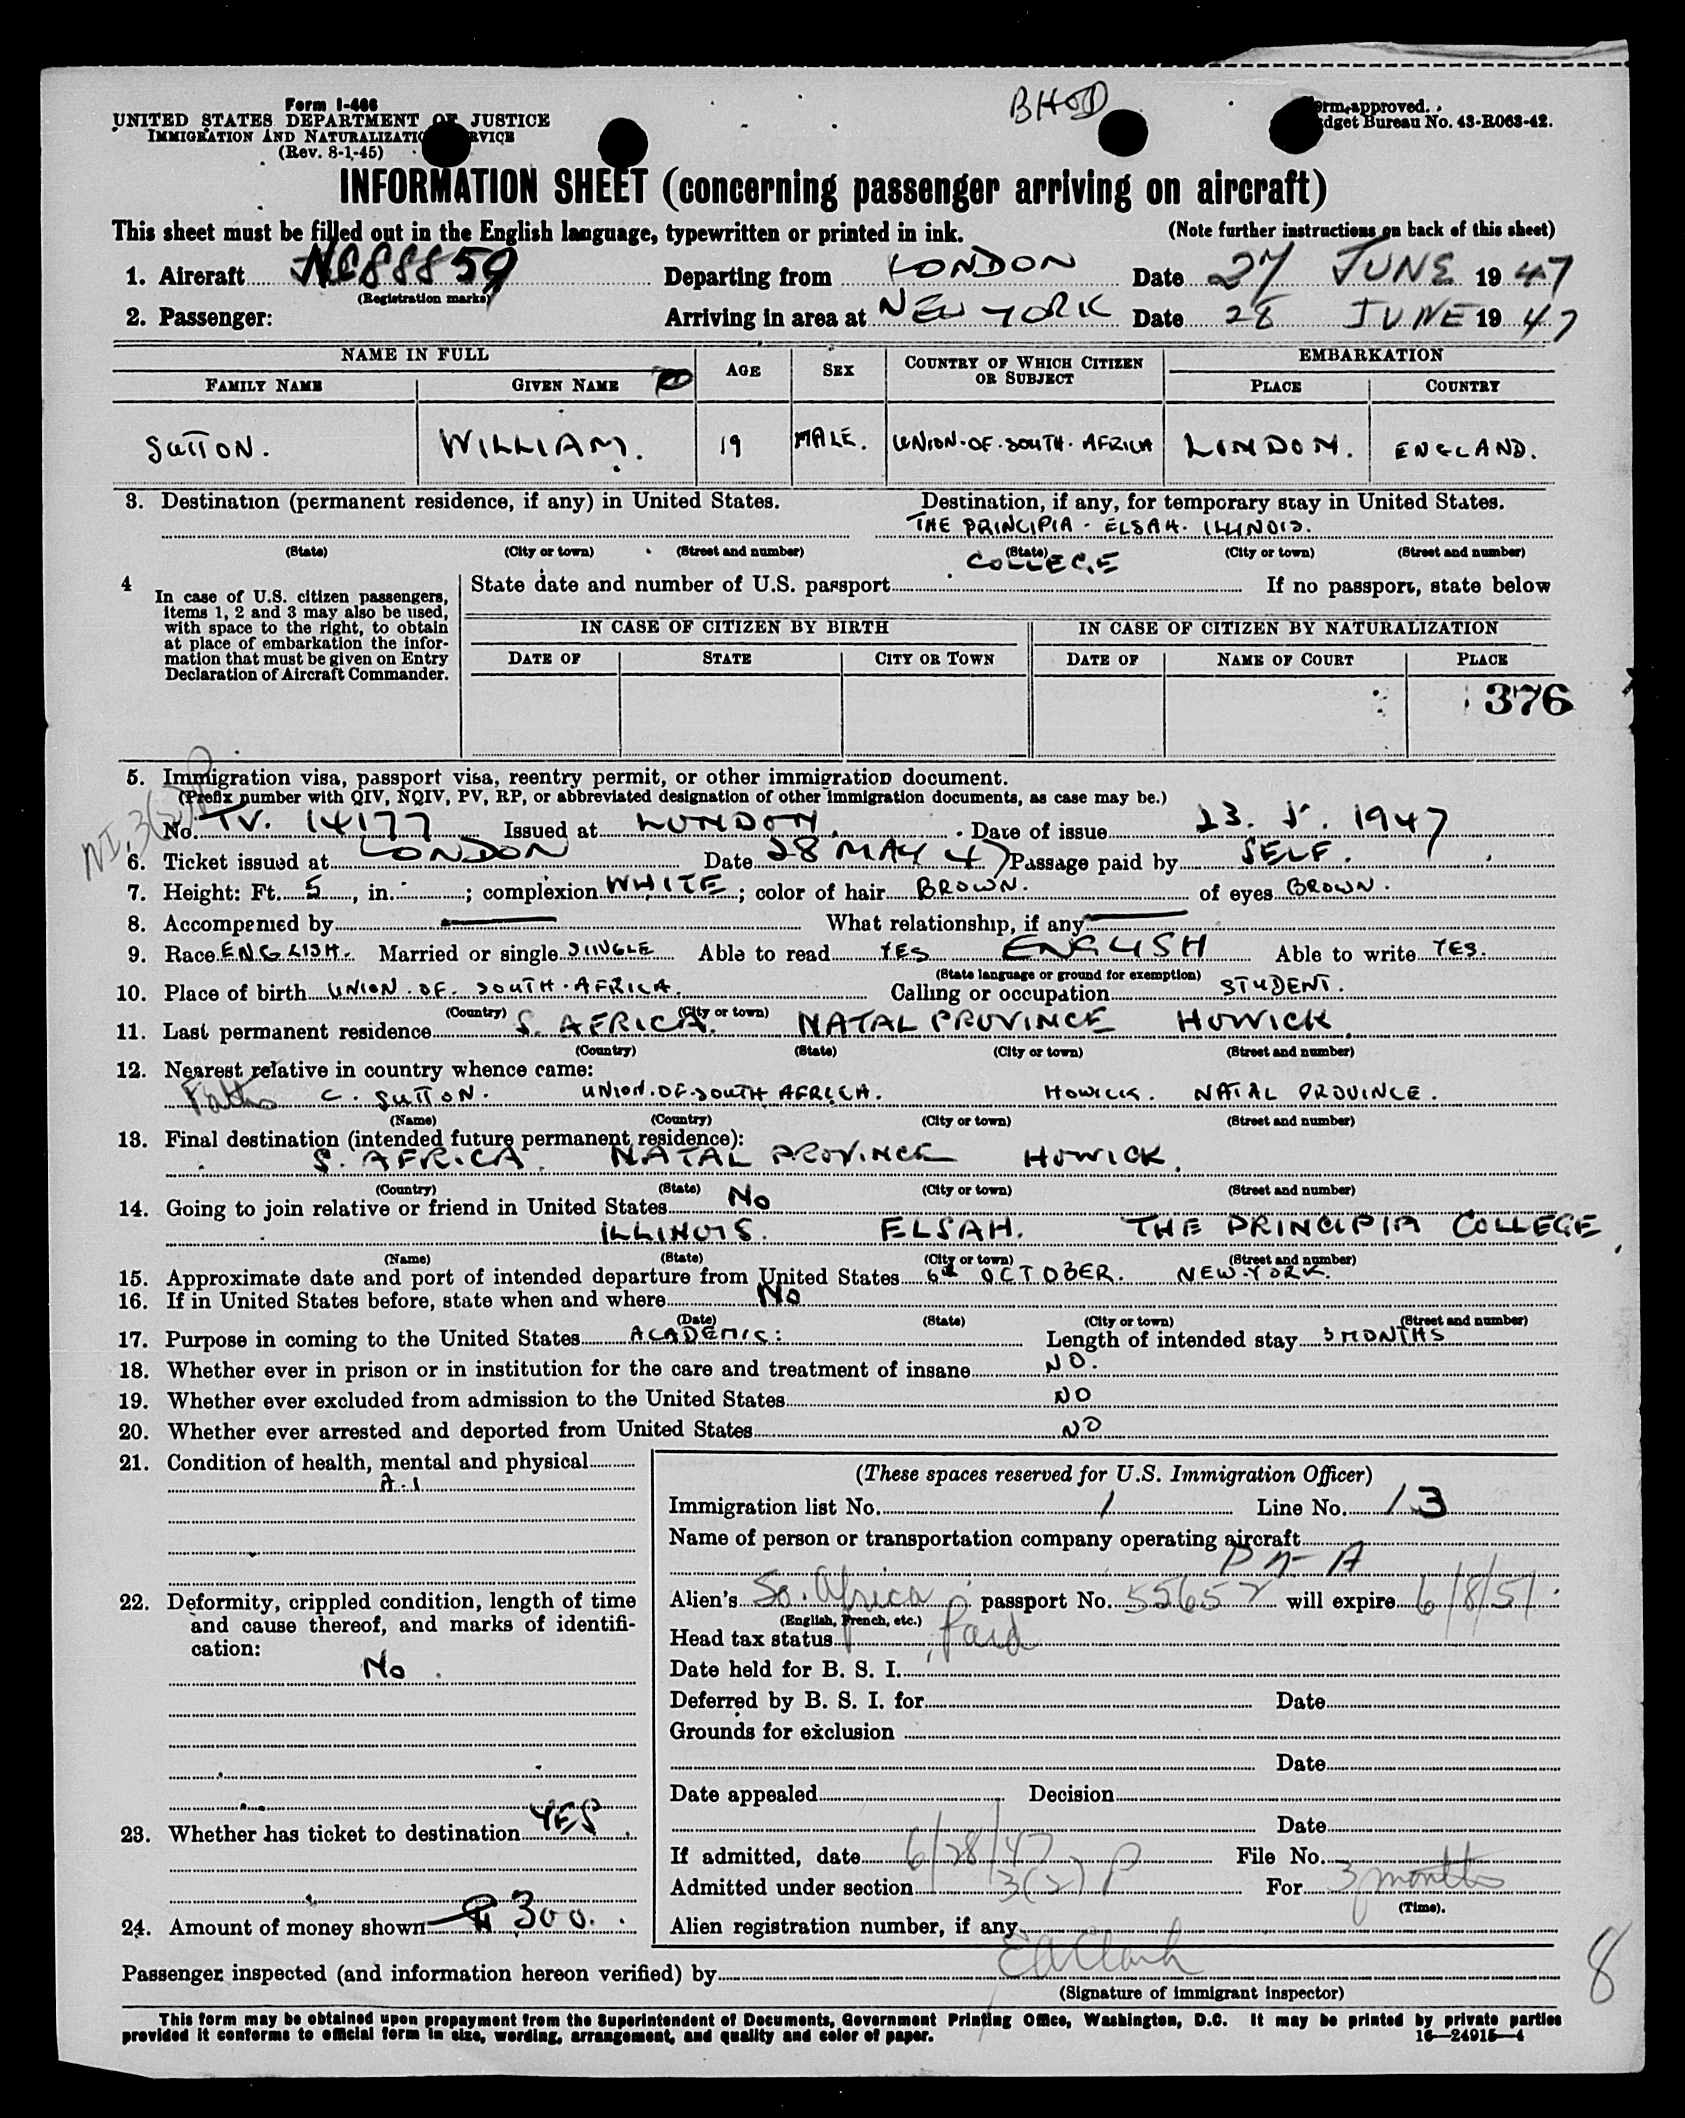 BHSD
Form I-466
UNITED STATES DEPARTMENT OF JUSTICE
IMMIGRATION AND NATURALIZATION SERVICE
(Rev. 8-1-45)
Form approved.
Budget Bureau No. 43-R063-42.
INFORMATION SHEET (concerning passenger arriving on aircraft)
This sheet must be filled out in the English language, typewritten or printed in ink. (Note further instructions on back of this sheet)
1. Aircraft NC88859 Departing from LONDON Date 27 JUNE 1947
(Registration marks)
2. Passenger: Arriving in area at NEW YORK Date 28 JUNE 1947
NAME IN FULL AGE SEX COUNTRY OF WHICH CITIZEN OR SUBJECT EMBARKATION
FAMILY NAME GIVEN NAME PLACE COUNTRY
SUTTON. WILLIAM. 19 MALE. UNION-OF-SOUTH-AFRICA LONDON. ENGLAND.
3. Destination (permanent residence, if any) in United States. Destination, if any, for temporary stay in United States.
THE PRINCIPIA - ELSAH. ILLINOIS.
(State) (City or town) (Street and number) (State) (City or town) (Street and number)
COLLEGE
4 In case of U.S. citizen passengers, items 1, 2 and 3 may also be used, with space to the right, to obtain at place of embarkation the information that must be given on Entry Declaration of Aircraft Commander.
State date and number of U.S. passport If no passport, state below
IN CASE OF CITIZEN BY BIRTH IN CASE OF CITIZEN BY NATURALIZATION
DATE OF STATE CITY OR TOWN DATE OF NAME OF COURT PLACE
376
5. Immigration visa, passport visa, reentry permit, or other immigration document.
(Prefix number with QIV, NQIV, PV, RP, or abbreviated designation of other immigration documents, as case may be.)
No. TV. 14177 Issued at LONDON. Date of issue 23. 5. 1947
6. Ticket issued at LONDON Date 28 MAY 47 Passage paid by SELF.
7. Height: Ft. 5, in. -; complexion WHITE; color of hair BROWN. of eyes BROWN.
8. Accompanied by — What relationship, if any —
9. Race ENGLISH. Married or single SINGLE Able to read YES ENGLISH Able to write YES.
(State language or ground for exemption)
10. Place of birth UNION OF SOUTH AFRICA. Calling or occupation STUDENT.
(Country) (City or town)
11. Last permanent residence S. AFRICA. NATAL PROVINCE HOWICK.
(Country) (State) (City or town) (Street and number)
12. Nearest relative in country whence came:
Father C. SUTTON. UNION-OF-SOUTH AFRICA. HOWICK. NATAL PROVINCE.
(Name) (Country) (City or town) (Street and number)
13. Final destination (intended future permanent residence):
S. AFRICA. NATAL PROVINCE HOWICK.
(Country) (State) (City or town) (Street and number)
14. Going to join relative or friend in United States No
ILLINOIS. ELSAH. THE PRINCIPIA COLLEGE.
(Name) (State) (City or town) (Street and number)
15. Approximate date and port of intended departure from United States 6th OCTOBER. NEW-YORK.
16. If in United States before, state when and where No
(Date) (State) (City or town) (Street and number)
17. Purpose in coming to the United States ACADEMIC: Length of intended stay 3 MONTHS
18. Whether ever in prison or in institution for the care and treatment of insane NO.
19. Whether ever excluded from admission to the United States NO
20. Whether ever arrested and deported from United States NO
21. Condition of health, mental and physical
A.1
22. Deformity, crippled condition, length of time and cause thereof, and marks of identification:
No.
23. Whether has ticket to destination YES
24. Amount of money shown $ 300.
(These spaces reserved for U.S. Immigration Officer)
Immigration list No. 1 Line No. 13
Name of person or transportation company operating aircraft
P A A
Alien's So. Africa passport No. 55652 will expire 6/8/51
(English, French, etc.)
Head tax status Paid
Date held for B. S. I.
Deferred by B. S. I. for Date
Grounds for exclusion
Date
Date appealed Decision
Date
If admitted, date 6/28/47 File No.
Admitted under section 3(2) P For 3 months
(Time).
Alien registration number, if any
Passenger inspected (and information hereon verified) by EA Clark
(Signature of immigrant inspector)
8
This form may be obtained upon prepayment from the Superintendent of Documents, Government Printing Office, Washington, D.C. It may be printed by private parties
provided it conforms to official form in size, wording, arrangement, and quality and color of paper. 16—24915—4